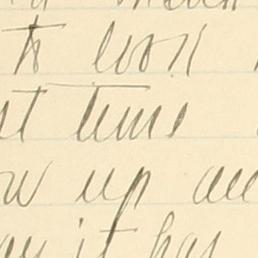 to look
st time
ow up all
ay it has